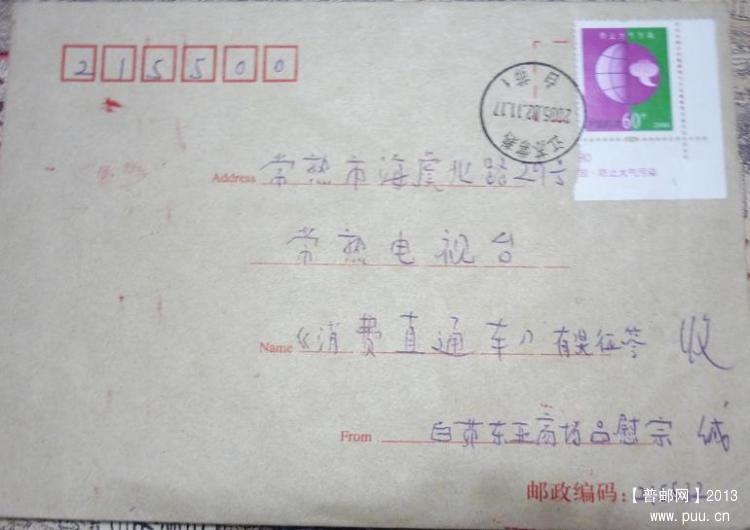 215500
防止大气污染
60分
江苏常熟
2005.02.11.17
白茆1
防止大气污染
Address 常熟市海虞北路29号
常熟电视台
Name 《消费直通车》有奖征答 收
From 白茆东亚商场吕慰宗 缄
邮政编码:
【普邮网】2013
www.puu.cn